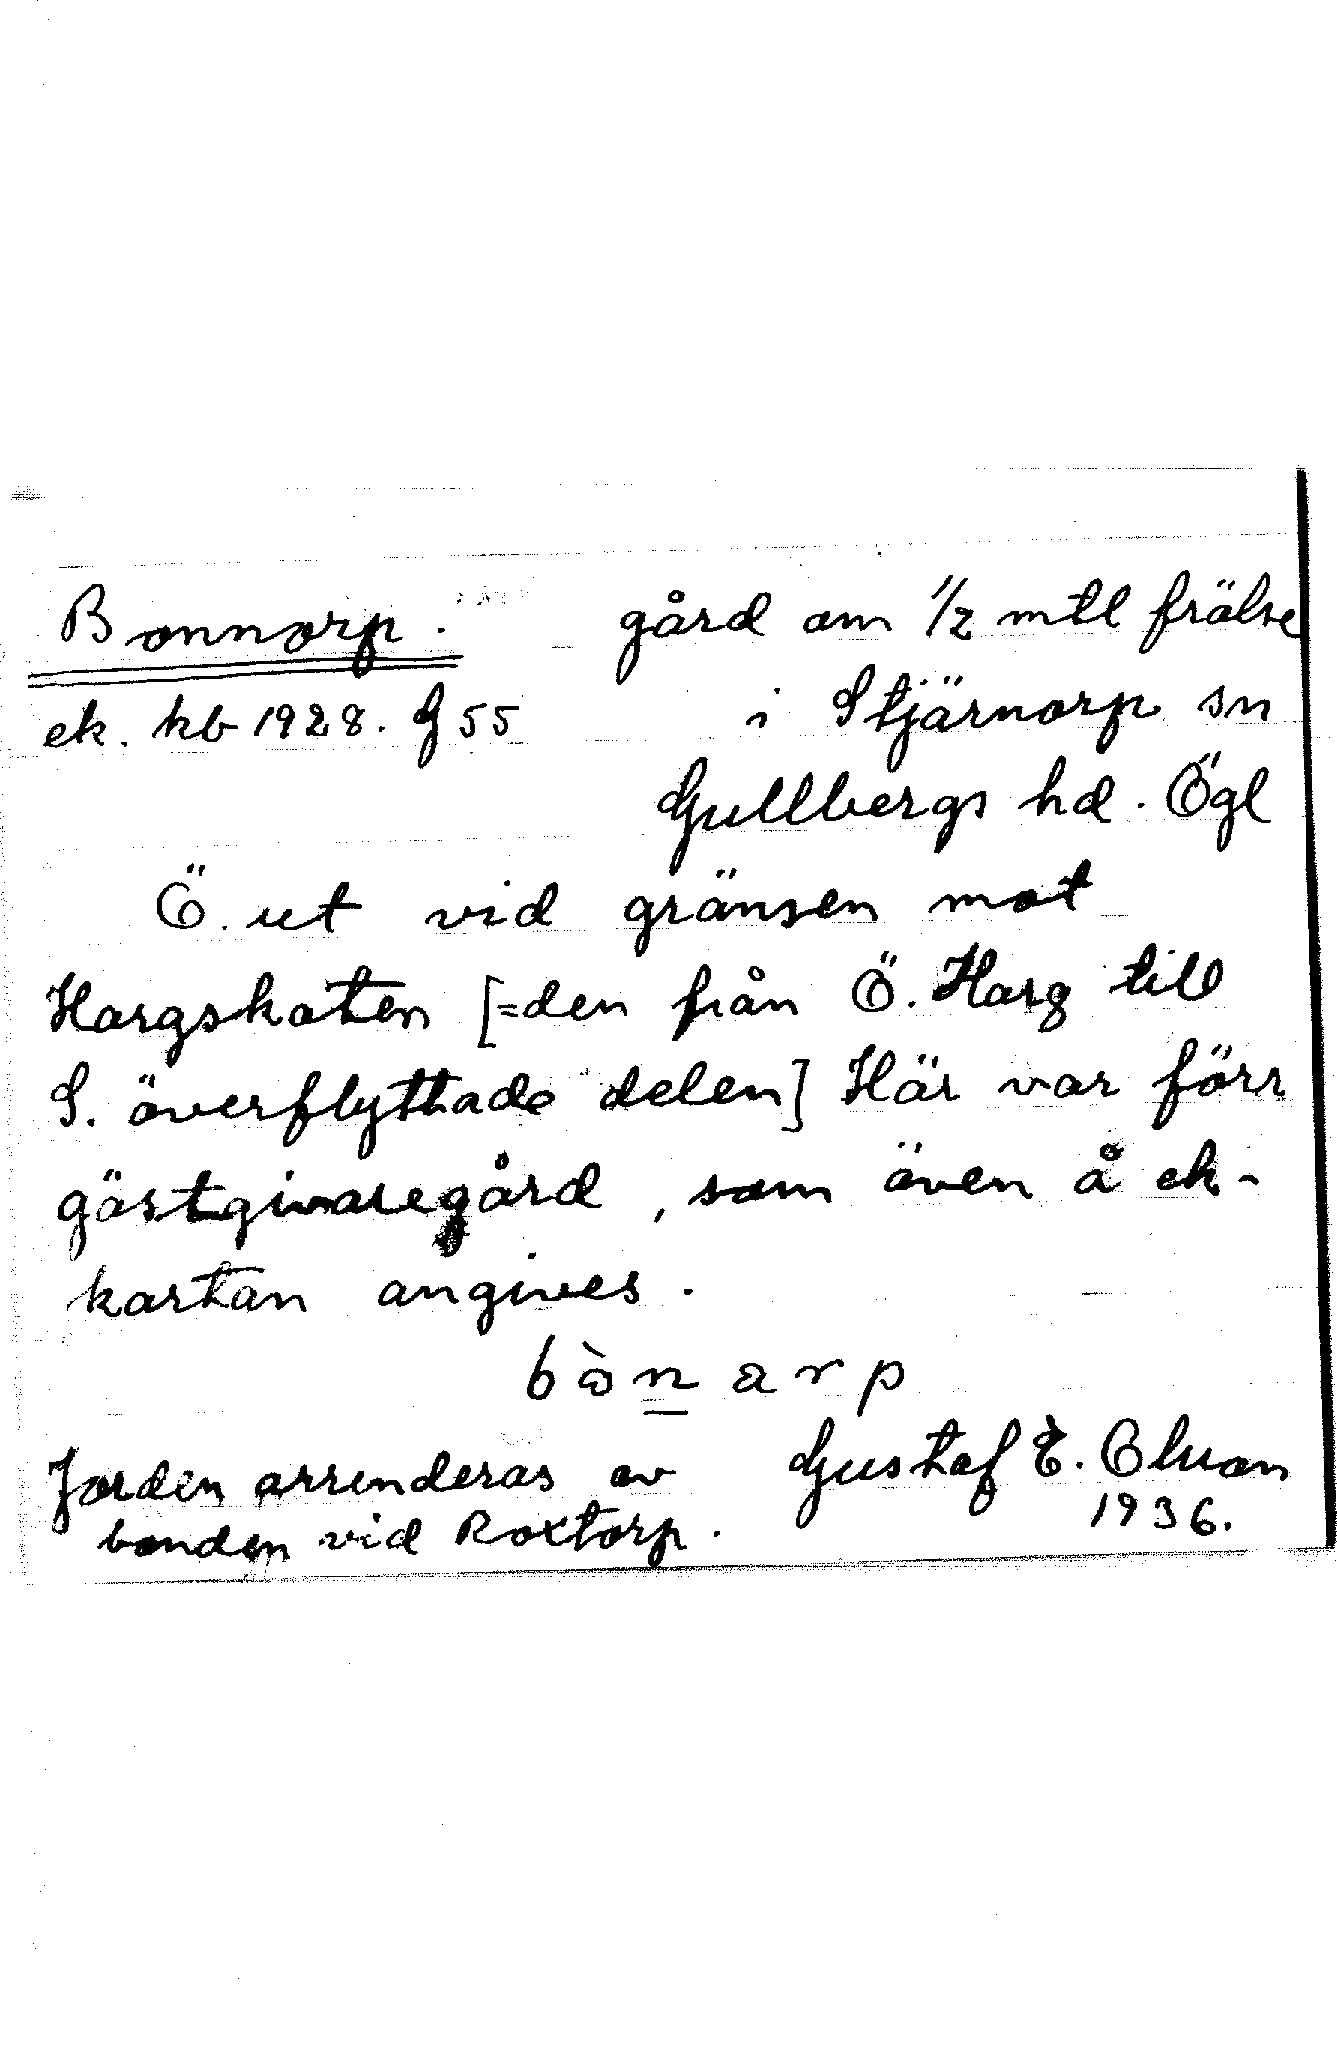 Bonnorp. gård om 1/2 mtl frälse
ek. kb 1928. G 55 i Stjärnorp sn
Gullbergs hd. Ögl
Ö. ut vid gränsen mot
Hargskaten [=den från Ö. Harg till
S. överflyttade delen] Här var förr
gästgivaregård, som även å ek-
kartan angives.
bònarp
Jorden arrenderas av Gustaf E. Olsson
bonden vid Roxtorp. 1936.